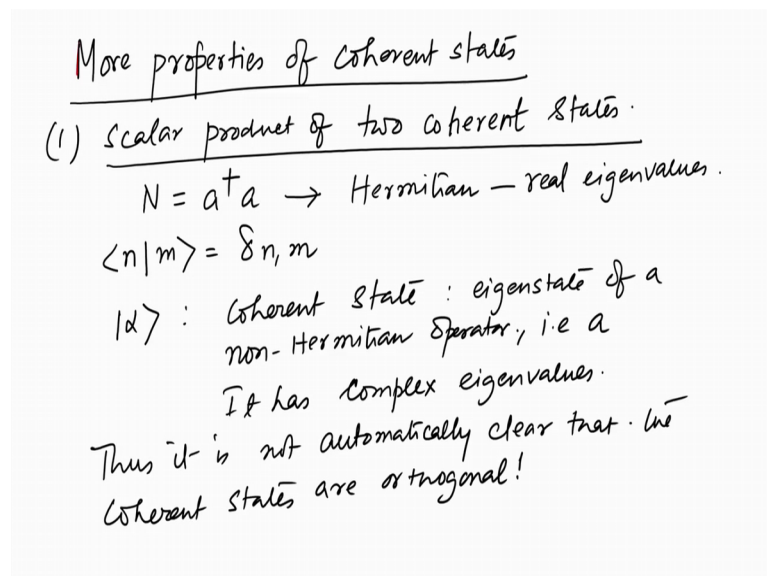 More properties of coherent states
(1) Scalar product of two coherent states.
N = a†a → Hermitian – real eigenvalues.
<n|m> = δn,m
|α> : Coherent state : eigenstate of a
non-Hermitian operator, i.e a
It has complex eigenvalues.
Thus it is not automatically clear that the
coherent states are orthogonal!